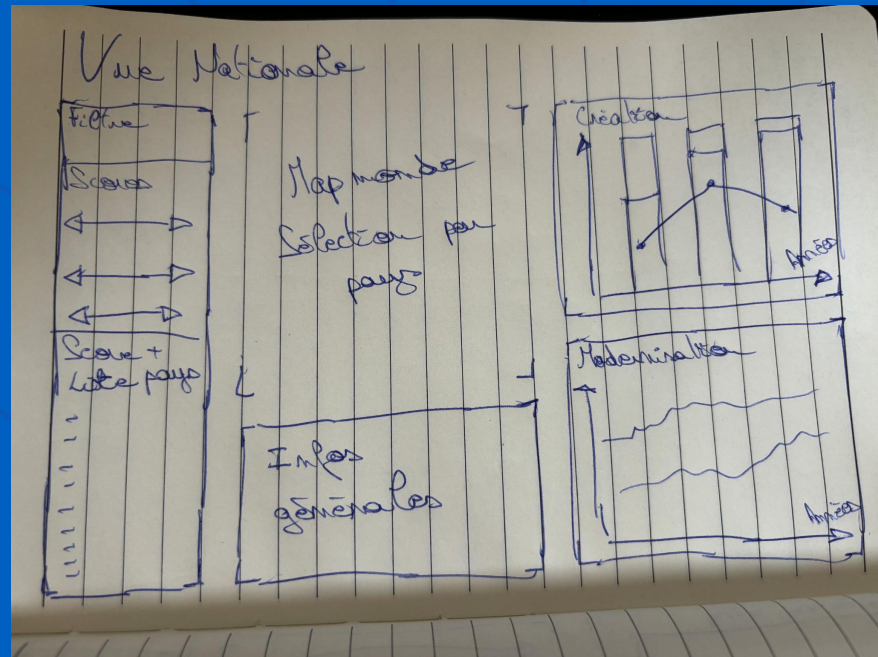 Vue Nationale
Filtre
Scores
Score +
Liste pays
Map monde
Sélection par
pays
Infos
générales
Création
Années
Modernisation
Années